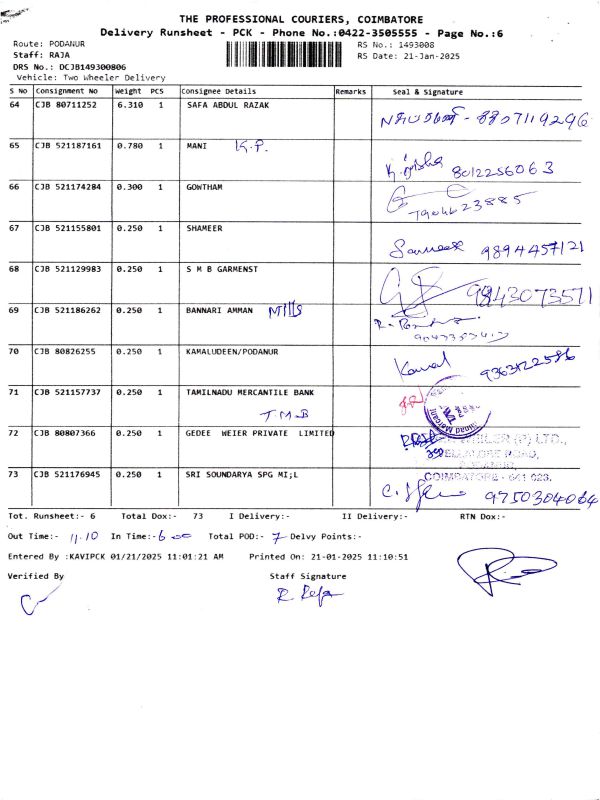 THE PROFESSIONAL COURIERS, COIMBATORE
Delivery Runsheet - PCK - Phone No.:0422-3505555 - Page No.:6
Route: PODANUR RS No.: 1493008
Staff: RAJA RS Date: 21-Jan-2025
DRS No.: DCJB149300806
Vehicle: Two Wheeler Delivery
S No Consignment No Weight PCS Consignee Details Remarks Seal & Signature
64 CJB 80711252 6.310 1 SAFA ABDUL RAZAK - 8807119296
65 CJB 521187161 0.780 1 MANI K.P. 8012256063
66 CJB 521174284 0.300 1 GOWTHAM 7904623885
67 CJB 521155801 0.250 1 SHAMEER 9894457121
68 CJB 521129983 0.250 1 S M B GARMENST 9843073571
69 CJB 521186262 0.250 1 BANNARI AMMAN Mills
70 CJB 80826255 0.250 1 KAMALUDEEN/PODANUR Kamal
71 CJB 521157737 0.250 1 TAMILNADU MERCANTILE BANK
T.M.B
72 CJB 80807366 0.250 1 GEDEE WEIER PRIVATE LIMITED (P) LTD.,
ROAD,
COIMBATORE - 641 023.
73 CJB 521176945 0.250 1 SRI SOUNDARYA SPG MI;L 9750304064
Tot. Runsheet:- 6 Total Dox:- 73 I Delivery:- II Delivery:- RTN Dox:-
Out Time:- 11.10 In Time:- 6 00 Total POD:- 7 Delvy Points:-
Entered By :KAVIPCK 01/21/2025 11:01:21 AM Printed On: 21-01-2025 11:10:51
Verified By Staff Signature
R Raja